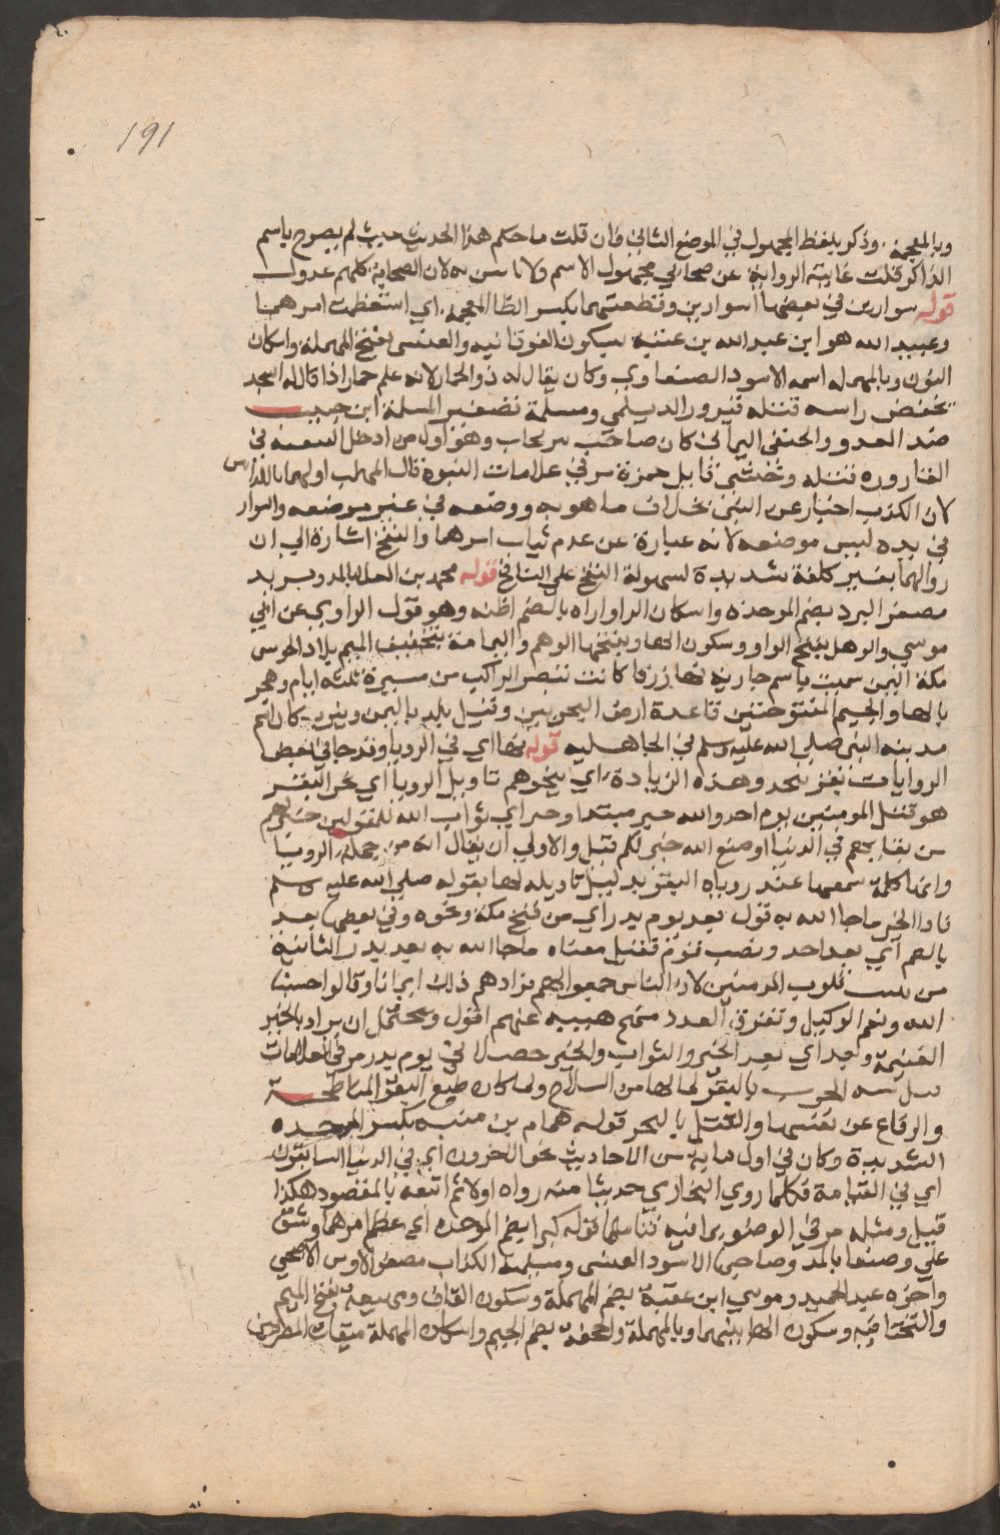 191
وبالمعجمة وذكر بلفظ المجهول في الموضع الثاني فان قلت ما حكم هذا الحديث حيث لم يصرح باسم
الذاكر قلت غايته الرواية عن صحابي مجهول الاسم ولا باس به لان الصحابة كلهم عدول
قوله سوارين في بعضها اسوارين وفظعتهما بكسر الظا المعجمة اي استعظمت امرهما
وعبيد الله هو ابن عبد الله بن عتبة بسكون الفوقانيه والعنسي بفتح المهملة واسكان
النون وبالمهمله اسمه الاسود الصنعاوي وكان يقال له ذو الحمار لانه علم حمارا اذا قال له اسجد
يخفض راسه قتله فيروز الديلمي ومسلمة تصغير المسلمة ابن حبيب
ضد العدو والحنفي اليماني كان صاحب نيرنجات وهو اول من ادخل البيضة في
القاروره قتله وحشي قاتل حمزة مر في علامات النبوة قال المهلب اولهما بالكذابين
لان الكذب اخبار عن الشي بخلاف ما هو به ووضعه في غير موضعه والسوار
في يده ليس موضعه لانه عبارة عن عدم ثبات امرهما والنفخ اشارة الى ان
زوالهما بغير كلفة شديدة لسهولة النفخ على النافخ قوله محمد بن العلا بالمد وبريد
مصغر البرد بضم الموحده واسكان الرا واراه بالضم اظنه وهو قول الراوي عن ابي
موسي والوهل بفتح الواو وسكون الها وبفتحها الوهم واليمامة بتخفيف الميم بلاد الجو بين
مكة اليمن سميت باسم جارية زرقا كانت تبصر الراكب من مسيرة ثلثه ايام وهجر
بالها والجيم المفتوحتين قاعدة ارض البحرين وقيل بلد باليمن ويثرب كان اسم
مدينه النبي صلي الله عليه وسلم في الجاهليه قوله بها اي في الرويا وقد جا في بعض
الروايات بقر تنحر وهذه الزيادة اي ينحرهم تاويل الرويا اي نحر البقر
هو قتل المومنين يوم احد والله خير مبتدا وخبر اي ثواب الله للمقتولين خير لهم
من بقايهم في الدنيا او صنع الله خير لكم قيل والاولي ان يقال انه من جملة الرويا
وانها كلمة سمعها عند روياه البقر بدليل تاويله لها بقوله صلي الله عليه وسلم
فاذا الخير ما جا الله به قوله بعد يوم بدر اي من فتح مكة ونحوه وفي بعضها بعد
بالضم اي بعد احد ونصب يوم فقيل معناه ما جا الله به بعد بدر الثانية
من قلوب المومنين لان الناس جمعوا لهم فزادهم ذلك ايمانا وقالوا حسبنا
الله ونعم الوكيل وتفرق العدو منهم هيبة عنهم اقول ويحتمل ان يراد بالخير
الغنيمة وبعد اي بعد الخير والثواب والخير حصلا في يوم بدر مر في العلامات
الحرب بالبقر لما لها من السلاح ولما كان طبع البقر المناطحة
والدفاع عن نفسها والقتل بالبحر قوله همام بن منبه بكسر الموحده
الشديدة وكان في اول من الاحاديث نحو الاخرون اي في الدنيا السابقون
اي في القيامة فكلما روي البخاري حديثا منه رواه اولا ثم اتبعه بالمقصود هكذا
قيل ومثله مر في الوضو قوله كبرا بضم الموحده اي عظم امرهما وشق
علي وصنعا بالمد وصاحبها الاسود العنسي ومسيلمة الكذاب مصغر الاوس الاصبحي
واخوه عبد الحميد وموسي ابن عقبة بضم المهملة وسكون القاف ومهيعة بفتح الميم
والتحتانيه وسكون الها بينهما وبالمهملة والجحفة بضم الجيم واسكان المهملة ميقات